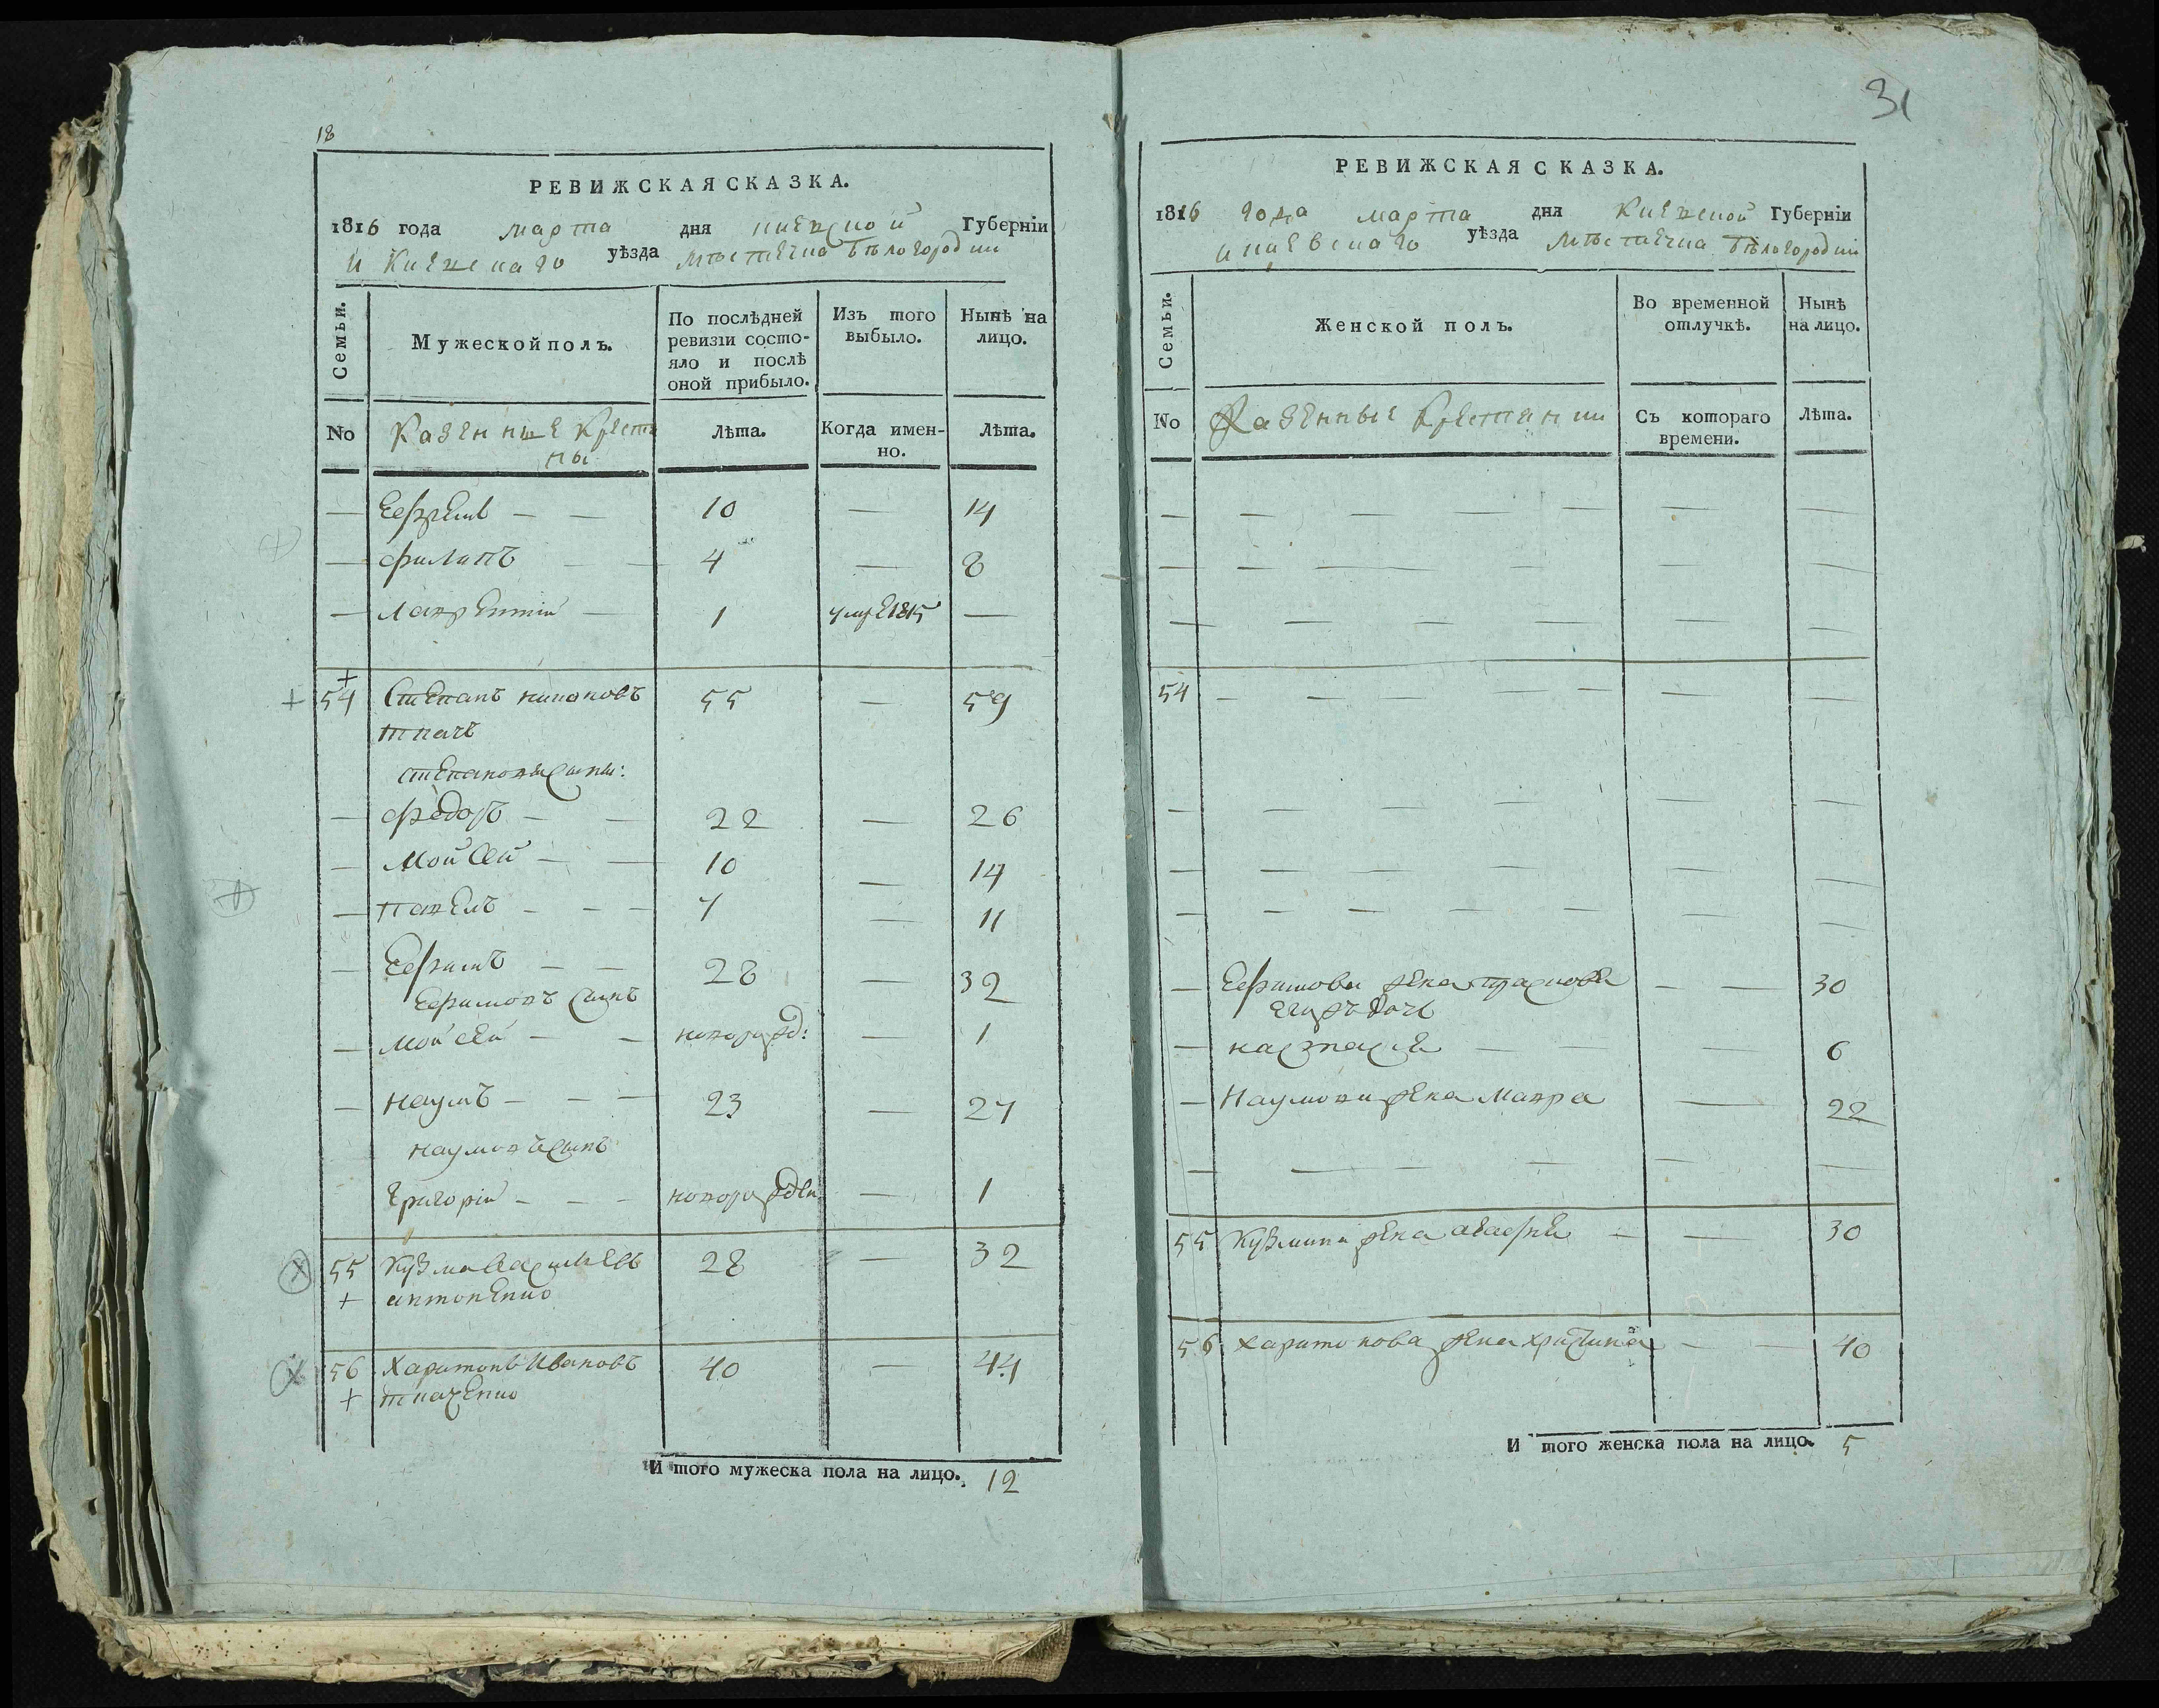 18
РЕВИЖСКАЯ СКАЗКА.
1816 года марта дня киевской Губерніи
и Киевскаго уѣзда мѣстечка бѣлогородки
Семьи. Мужеской полъ. По послѣдней ревизіи состояло и послѣ оной прибыло. Изъ того выбыло. Нынѣ на лицо.
No Казенные Крестяны Лѣта. Когда именно. Лѣта.
— Ефремъ — — 10 — 14
— филипъ — — 4 — 8
— лаврентій — 1 умре 1815 —
+ 54 + Степанъ никоновъ 55 — 59
ткачь
степановы сыны:
— федоръ — — 22 — 26
— Мойсей — — 10 — 14
— павелъ — — — 7 — 11
— Ефимъ — — 28 — 32
Ефимовъ сынъ
— мойсей — — новорожд: — 1
— наумъ — — — 23 — 27
наумовъ сынъ
григорій — — — новорожден — 1
55 Кузма василіевъ 28 — 32
+ антоненко
56 Харитонъ Ивановъ 40 — 44
+ ткаченко
И того мужеска пола на лицо. 12
31
РЕВИЖСКАЯ СКАЗКА.
1816 года марта дня Киевской Губерніи
и киевскаго уѣзда мѣстечка бѣлогородки
Семьи. Женской полъ. Во временной отлучкѣ. Нынѣ на лицо.
No Казенные Крестянки Съ котораго времени. Лѣта.
— — — — — — —
— — — — — — —
— — — — — — —
54 — — — — — —
— — — — — —
— — — — — — —
— — — — — — —
— Ефимова жена — — 30
дочь
— настасія — — — 6
— Наумова жена мавра — 22
— — — — — —
55 Кузмина жена агафия — — 30
56 харитонова жена христина — — 40
И того женска пола на лицо. 5